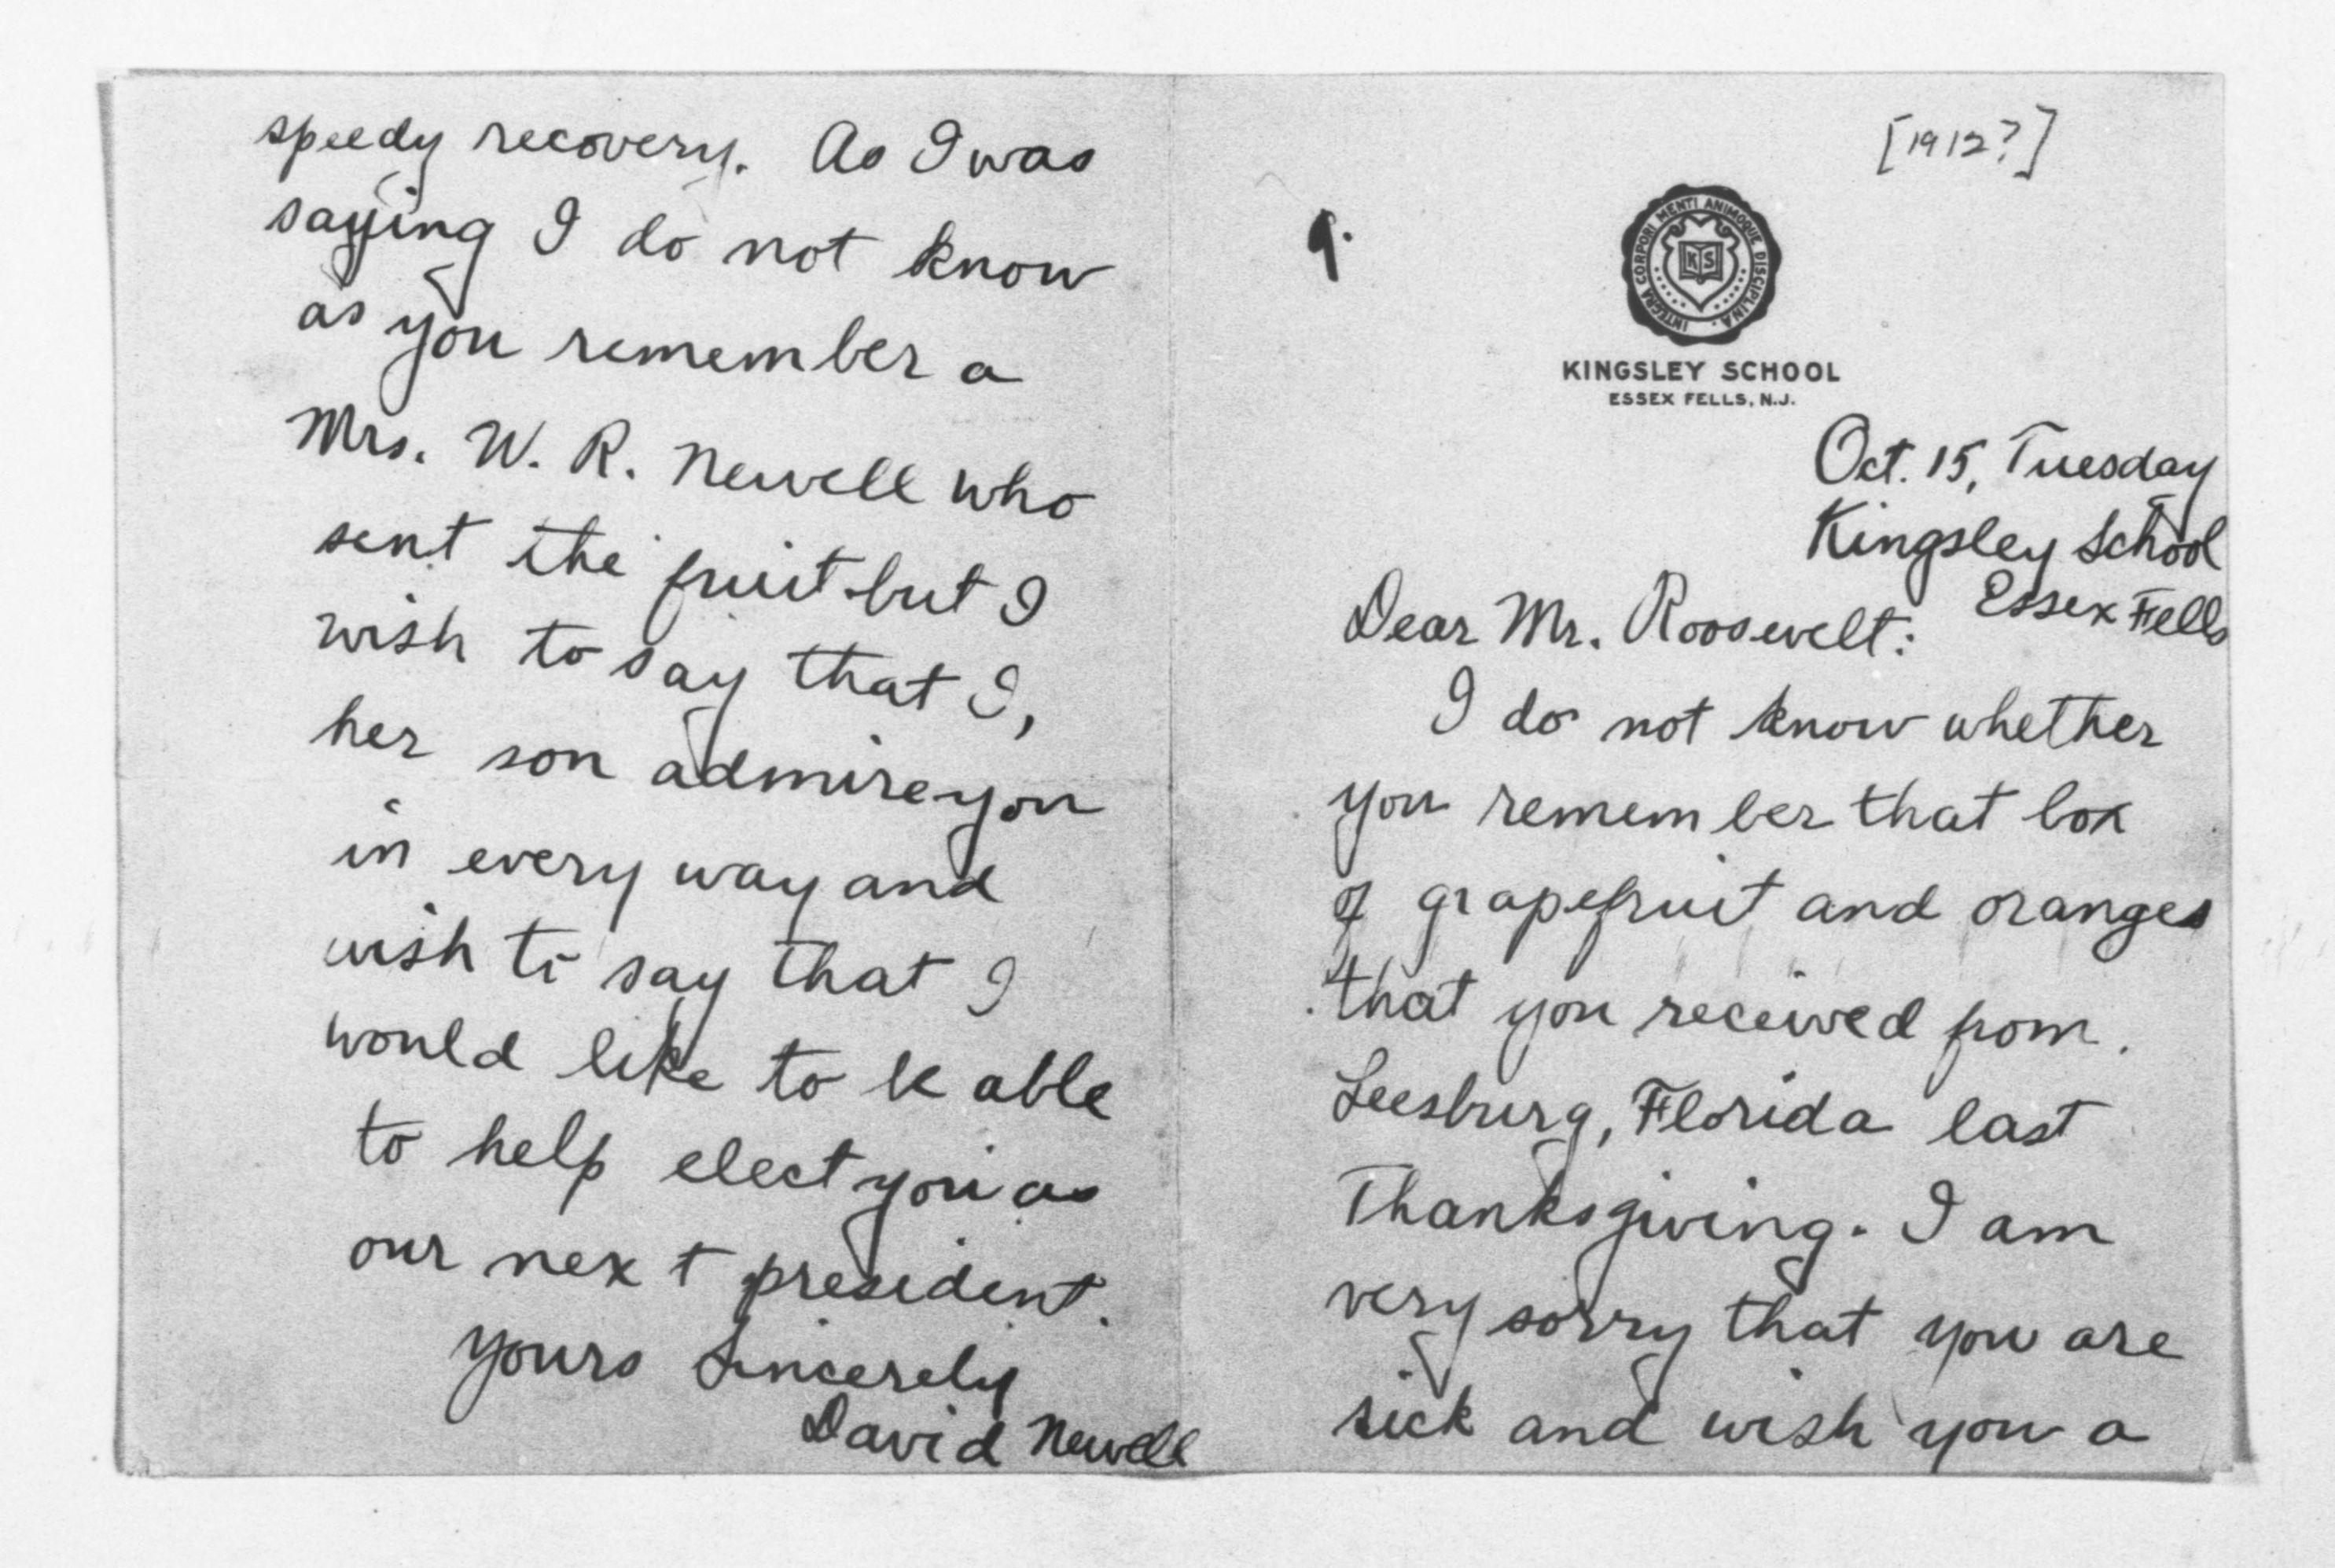 [1912?]
9.
INTEGRA CORPORI MENTI ANIMOQUE DISCIPLINA
KS
KINGSLEY SCHOOL
ESSEX FELLS, N.J.
Oct. 15, Tuesday
Kingsley School
Essex Fells
Dear Mr. Roosevelt:
I do not know whether
you remember that box
of grapefruit and oranges
that you received from
Leesburg, Florida last
Thanksgiving. I am
very sorry that you are
sick and wish you a
speedy recovery. As I was
saying I do not know
as you remember a
Mrs. W. R. Newell who
sent the fruit but I
wish to say that I,
her son admire you
in every way and
wish to say that I
would like to be able
to help elect you as
our next president.
Yours Sincerely
David Newell